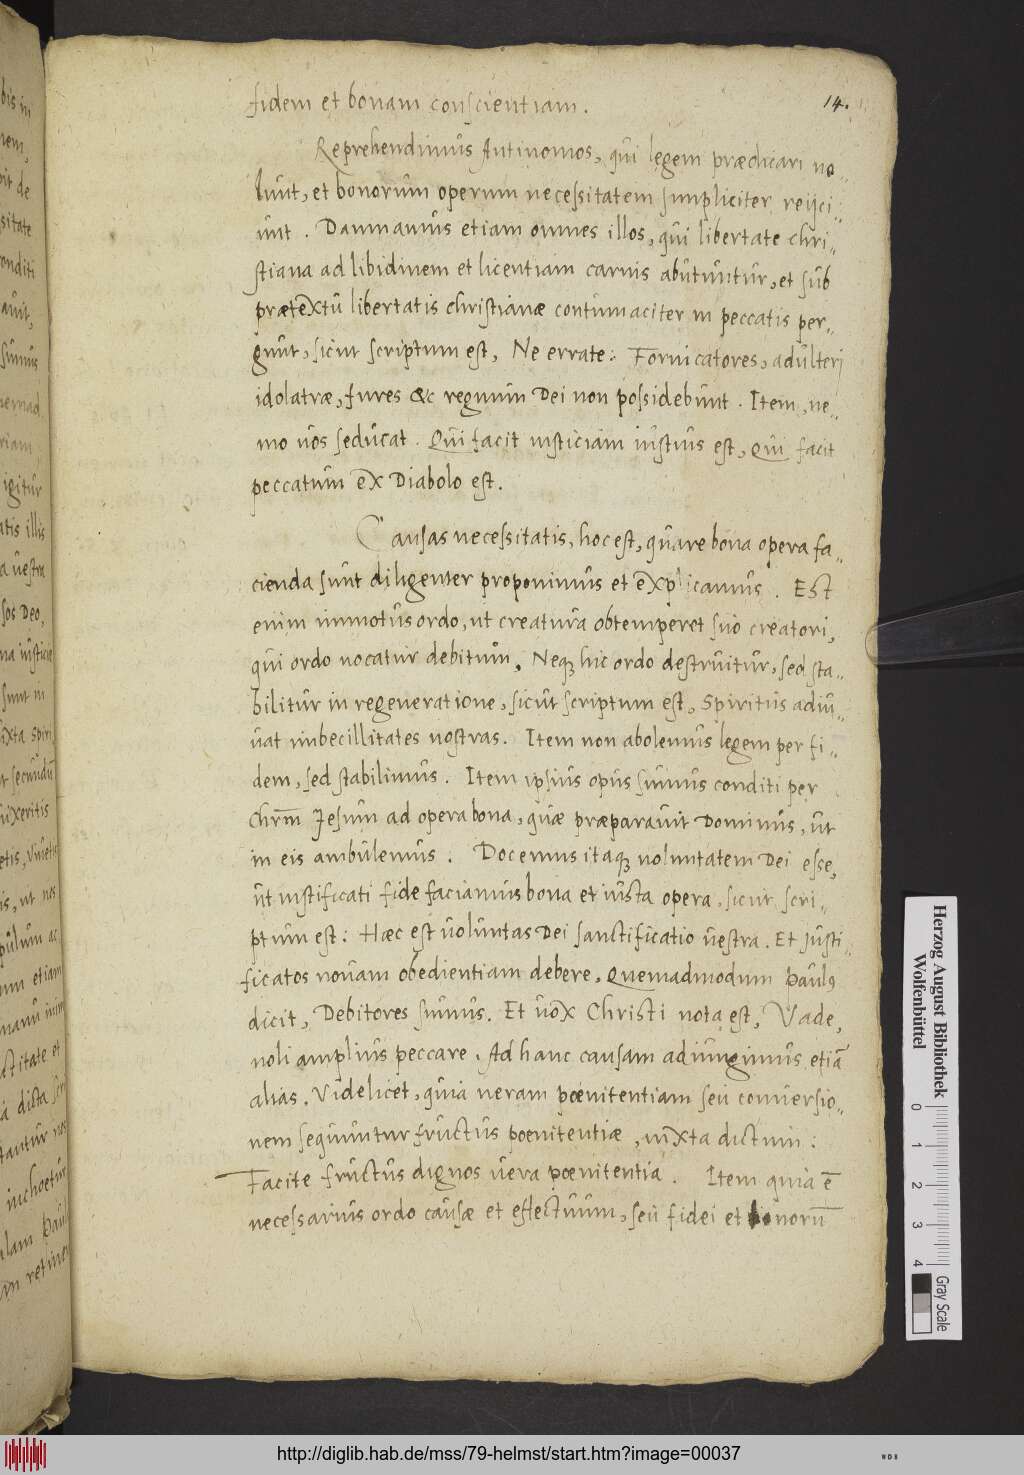 fidem et bonam conscientiam.
14.
Reprehendimus Antinomos, qui legem prædicari no-
lunt, et bonorum operum necessitatem simpliciter reijci-
unt. Damnamus etiam omnes illos, qui libertate chri-
stiana ad libidinem et licentiam carnis abutuntur, et sub
prætextu libertatis christianæ contumaciter in peccatis per-
gunt, sicut scriptum est, Ne errate: Fornicatores, adulteri
idolatræ, fures &c regnum Dei non possidebunt. Item, ne-
mo vos seducat. Qui facit iusticiam iustus est, Qui facit
peccatum ex Diabolo est.
Causas necessitatis, hoc est, quare bona opera fa-
cienda sunt diligenter proponimus et explicamus. Est
enim immotus ordo, ut creatura obtemperet suo creatori,
qui ordo vocatur debitum. Neq; hic ordo destruitur, sed sta-
bilitur in regeneratione, sicut scriptum est, Spiritus adiu-
vat imbecillitates nostras. Item non abolemus legem per fi-
dem, sed stabilimus. Item ipsius opus sumus conditi per
Chrm̄ Jesum ad opera bona, quæ præparavit Dominus, ut
in eis ambulemus. Docemus itaq; voluntatem Dei esse,
ut iustificati fide faciamus bona et iusta opera, sicut scri-
ptum est: Hæc est voluntas Dei sanctificatio vestra. Et justi-
ficatos novam obedientiam debere, Quemadmodum Paulus
dicit, Debitores sumus. Et vox Christi nota est, Vade,
noli amplius peccare. Ad hanc causam adiungimus etiā
alias. Videlicet, quia veram pœnitentiam seu conversio-
nem sequuntur fructus pœnitentiæ, iuxta dictum:
Facite fructus dignos vera pœnitentia. Item quia ē
necessarius ordo causæ et effectuum, seu fidei et bonorū
Herzog August Bibliothek
Wolfenbüttel
0 1 2 3 4
Gray Scale
http://diglib.hab.de/mss/79-helmst/start.htm?image=00037
WDB